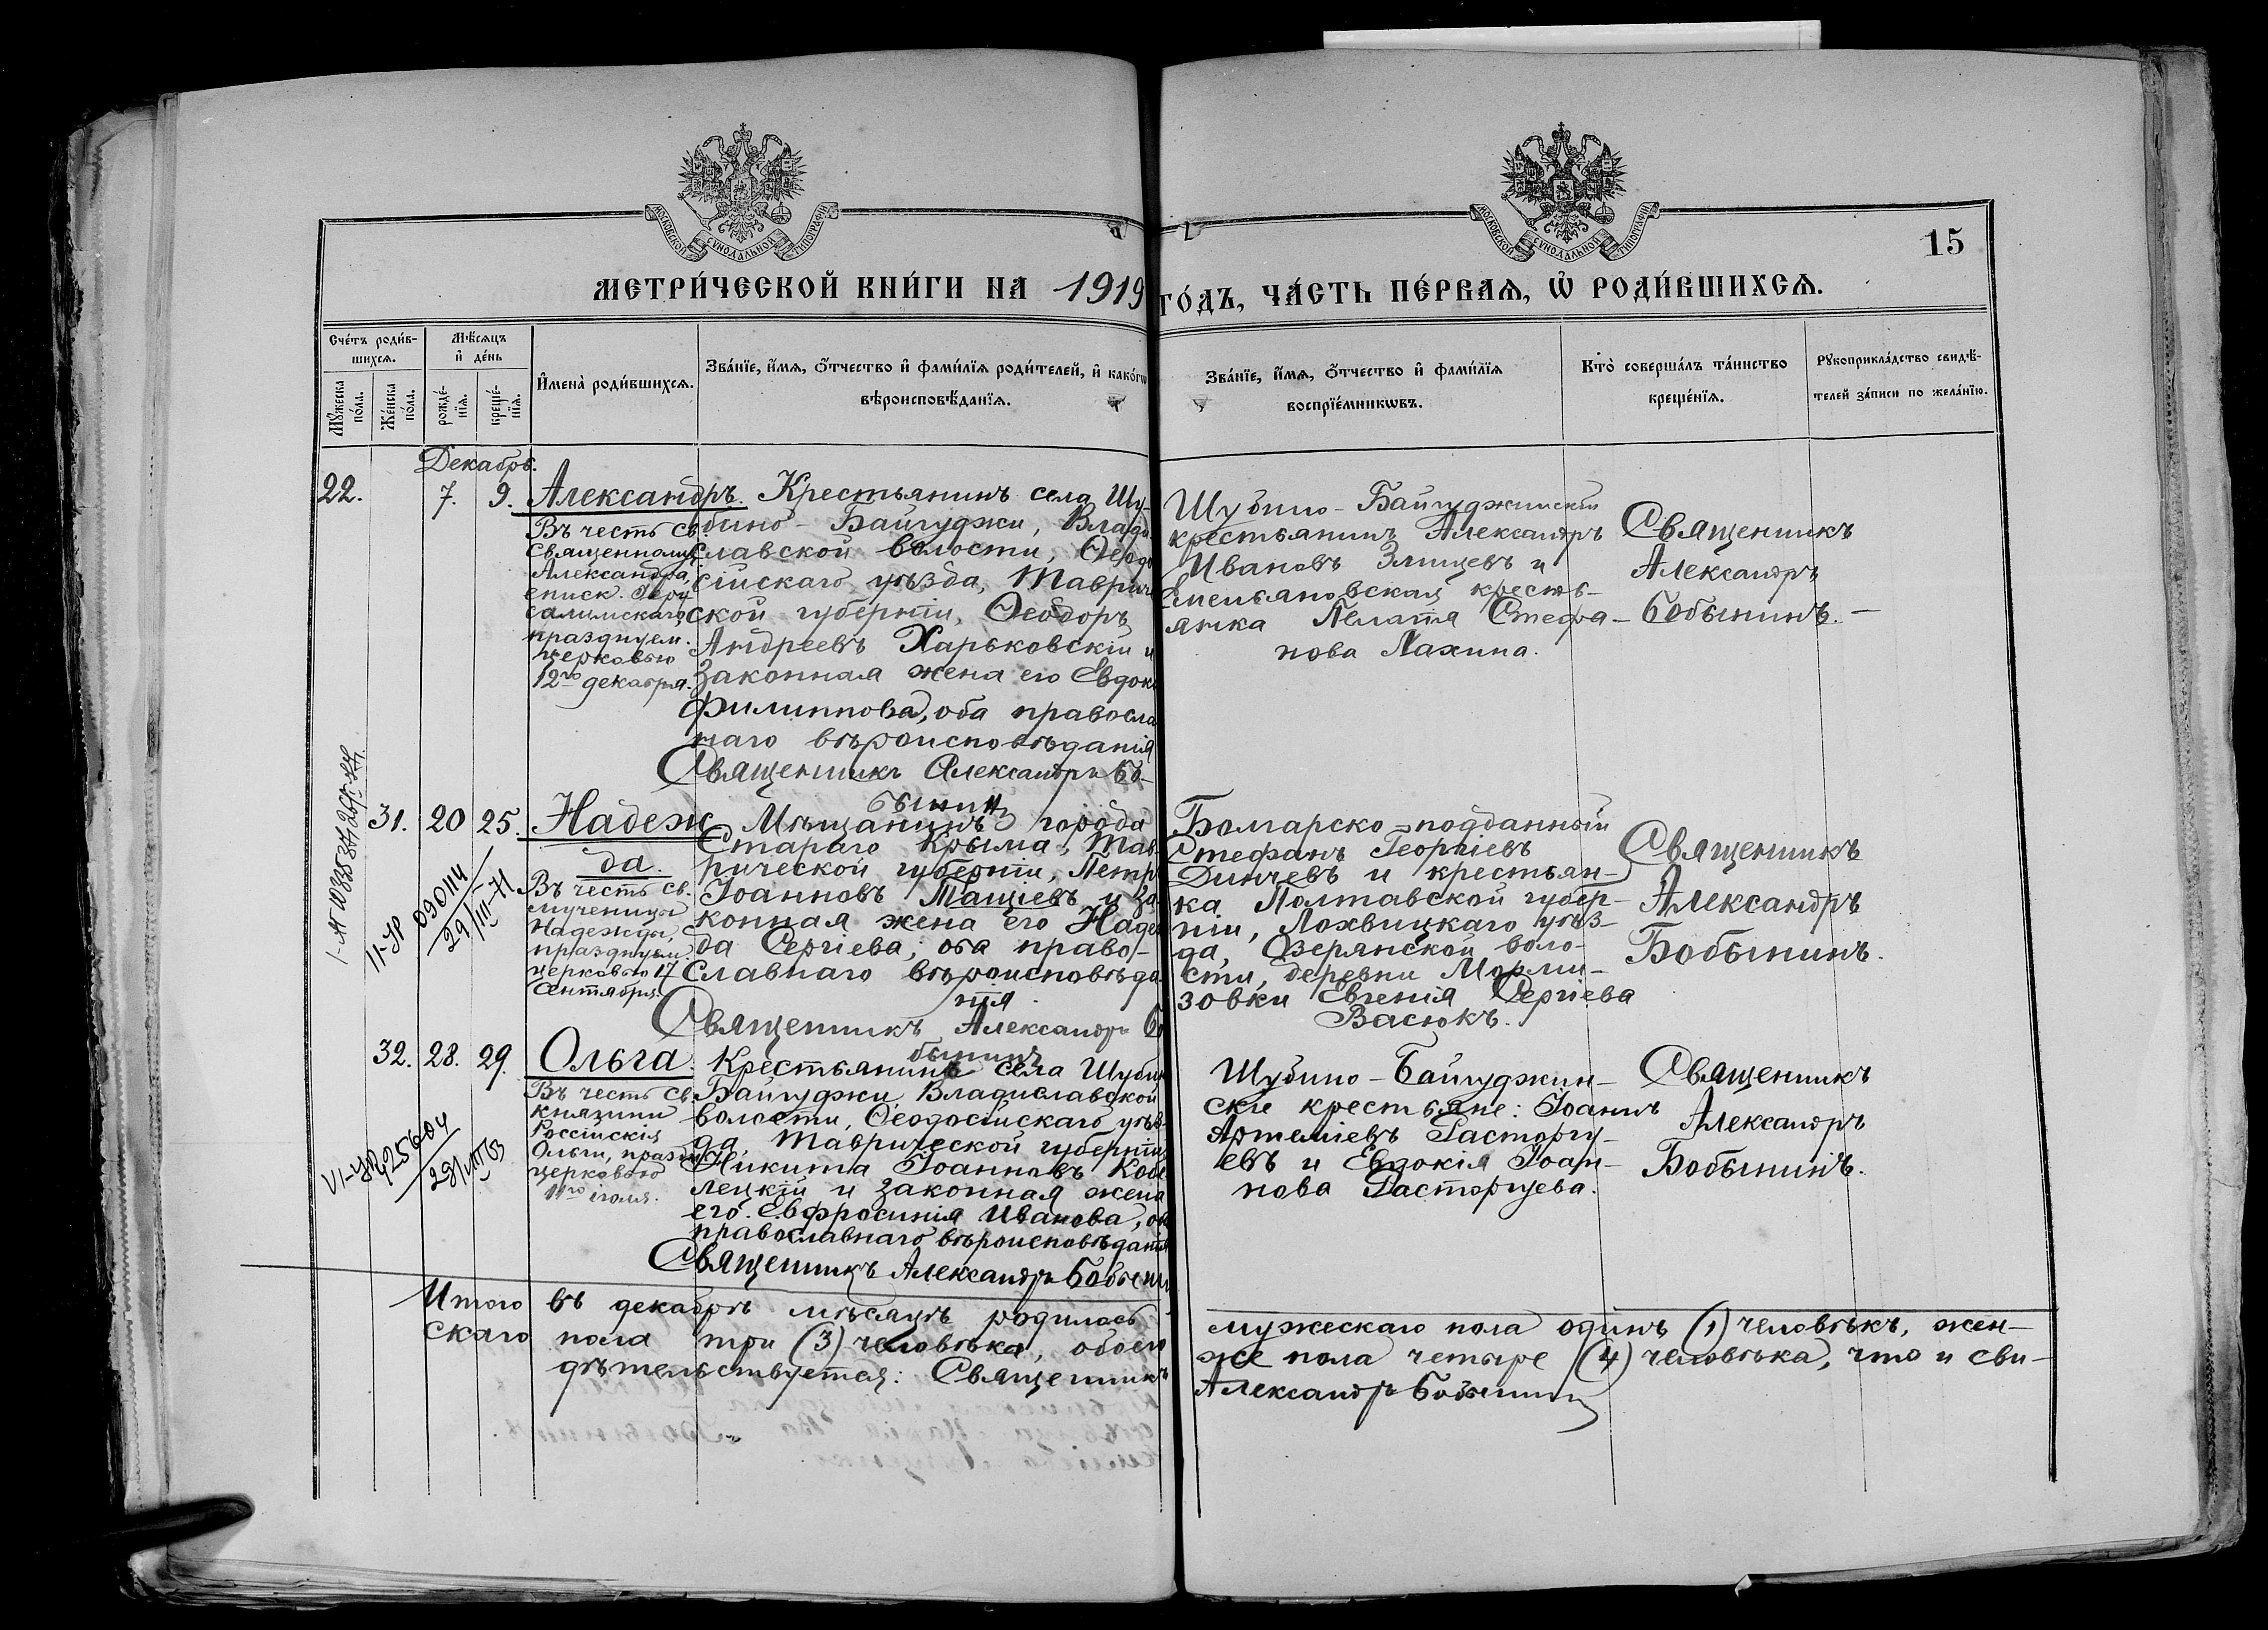 МОСКОВСКОЙ СѴНОДАЛЬНОЙ ТИПОГРАФІИ
МОСКОВСКОЙ СѴНОДАЛЬНОЙ ТИПОГРАФІИ
15
МЕТРИ́ЧЕСКОЙ КНИ́ГИ НА 1919 ГО́ДЪ, ЧА́СТЬ ПЕ́РВАѦ, Ѡ҆ РОДИ́ВШИХСѦ.
Сче́тъ роди́в-
шихсѧ.
Мꙋ́жеска
по́ла.
Же́нска
по́ла.
Мѣ́сѧцъ
и҆ де́нь
рожде́-
нїѧ.
креще́-
нїѧ.
И҆мена̀ роди́вшихсѧ.
Зва́нїе, и҆́мѧ, ѻ҆́тчество и҆ фами́лїѧ роди́телей, и҆ како́гѡ
вѣроисповѣ́данїѧ.
Зва́нїе, и҆́мѧ, ѻ҆́тчество и҆ фами́лїѧ
воспрїе́мникѡвъ.
Кто̀ соверша́лъ та́инство
креще́нїѧ.
Рꙋкоприкла́дство свидѣ́-
телей за́писи по жела́нїю.
Декабрь.
22.
7.
9.
Александръ.
Въ честь св.
священномуч.
Александра,
еписк. Іеру
салимскаго,
празднуем.
церковью
12го декабря.
Крестьянинъ села Шу-
бино - Байгуджи, Влади
славской волости, Ѳеодо
сійскаго уѣзда, Тавриче
ской губерніи, Ѳеодоръ
Андреевъ Харьковскій и
законная жена его Евдок
Филиппова, оба правосла
наго вѣроисповѣданія
Священникъ Александръ Бо-
бынинъ
Шубино - Байгуджинскій
крестьянинъ Александръ
Ивановъ Злищевъ и
Емельяновская кресть-
янка Пелагія Стефа-
нова Лахина.
Священникъ
Александръ
Бобынинъ. —
31.
20
25.
Надеж
да.
Въ честь св.
мученицы
Надежды,
празднуем.
церковью 17
Сентября.
Мѣщанинъ города
Стараго Крыма, Тав
рической губерніи, Петр
Іоанновъ Тащіевъ и за
конная жена его Надеж
да Сергіева; оба право-
славнаго вѣроисповѣда
нія
Священникъ Александръ Бо
бынинъ
Болгарско-подданный
Стефанъ Георгіевъ
Динчевъ и крестьян-
ка Полтавской губер-
ніи, Лохвицкаго уѣз-
да, Озерянской воло-
сти, деревни Морми-
зовки Евгенія Сергіева
Васюкъ.
Священникъ
Александръ
Бобынинъ.
II-УР 090114
29/III-71
32.
28.
29.
Ольга.
Въ честь св.
княгини
Россійскія
Ольги, празд
церковью
11го іюля.
Крестьянинъ села Шубин
Байгуджи Владиславской
волости, Ѳеодосійскаго уѣз
да, Таврической губерніи
Никита Іоанновъ Кобе
лецкій и законная жена
его Евфросинія Иванова, об
православнаго вѣроисповѣданія
Священникъ Александръ Бобынин
Шубино - Байгуджин-
скіе крестьяне: Іоаннъ
Артеміевъ Расторгу-
евъ и Евдокія Іоан-
нова Расторгуева.
Священникъ
Александръ
Бобынинъ.
Итого въ декабрѣ мѣсяцѣ родилось мужескаго пола одинъ (1) человѣкъ, жен-
скаго пола три (3) человѣка, обоего же пола четыре (4) человѣка, что и сви-
дѣтельствуется: Священникъ Александръ Бобынинъ